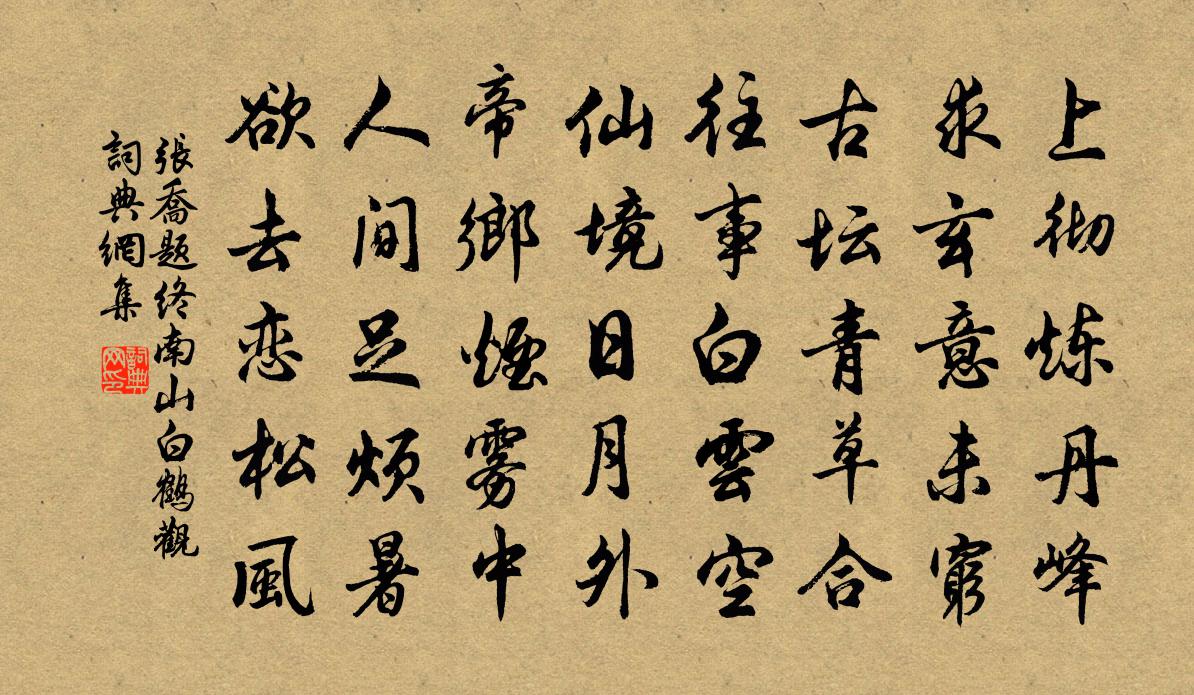 上彻炼丹峰
求玄意未窮
古坛青草合
往事白雲空
仙境日月外
帝鄉煙雾中
人间足烦暑
欲去恋松風
張喬题终南山白鹤觀
詞典網集
詞典网印